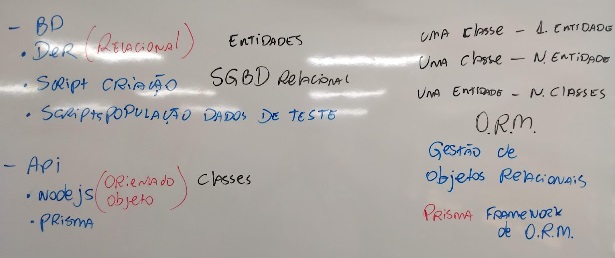 - BD
• DER (RELACIONAL) ENTIDADES
• Script CRIAÇÃO SGBD Relacional
• Scripts POPULAÇÃO DADOS DE TESTE
- API
• Nodejs (ORIENTADO Objeto) Classes
• PRISMA
UMA Classe - 1. ENTIDADE
UMA Classe - N. ENTIDADE
UMA ENTIDADE - N. CLASSES
O.R.M.
Gestão de
Objetos Relacionais
PRISMA FRAMEWORK
de O.R.M.